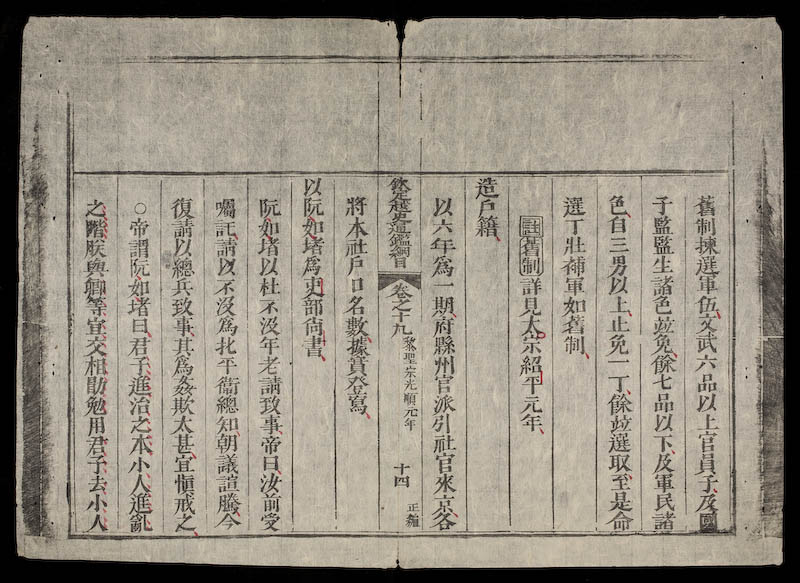 舊制揀選軍伍文武六品以上官員子及國
子監監生諸色並免餘七品以下及軍民諸
色自三男以上止免一丁餘並選取至是命
選丁壯補軍如舊制
註舊制詳見太宗紹平元年
造戶籍
以六年爲一期府縣州官派引社官來京各
欽定越史通鑑綱目 卷之十九 黎聖宗光順元年 十四 正編
將本社戶口名數據實登寫
以阮如堵爲吏部尙書
阮如堵以杜不沒年老請致事帝曰汝前受
囑託請以不沒爲北平衛總知朝議諠騰今
復請以總兵致事其爲姦欺太甚宜愼戒之
○帝謂阮如堵曰君子進治之本小人進亂
之階朕與卿等宜交相勗勉用君子去小人